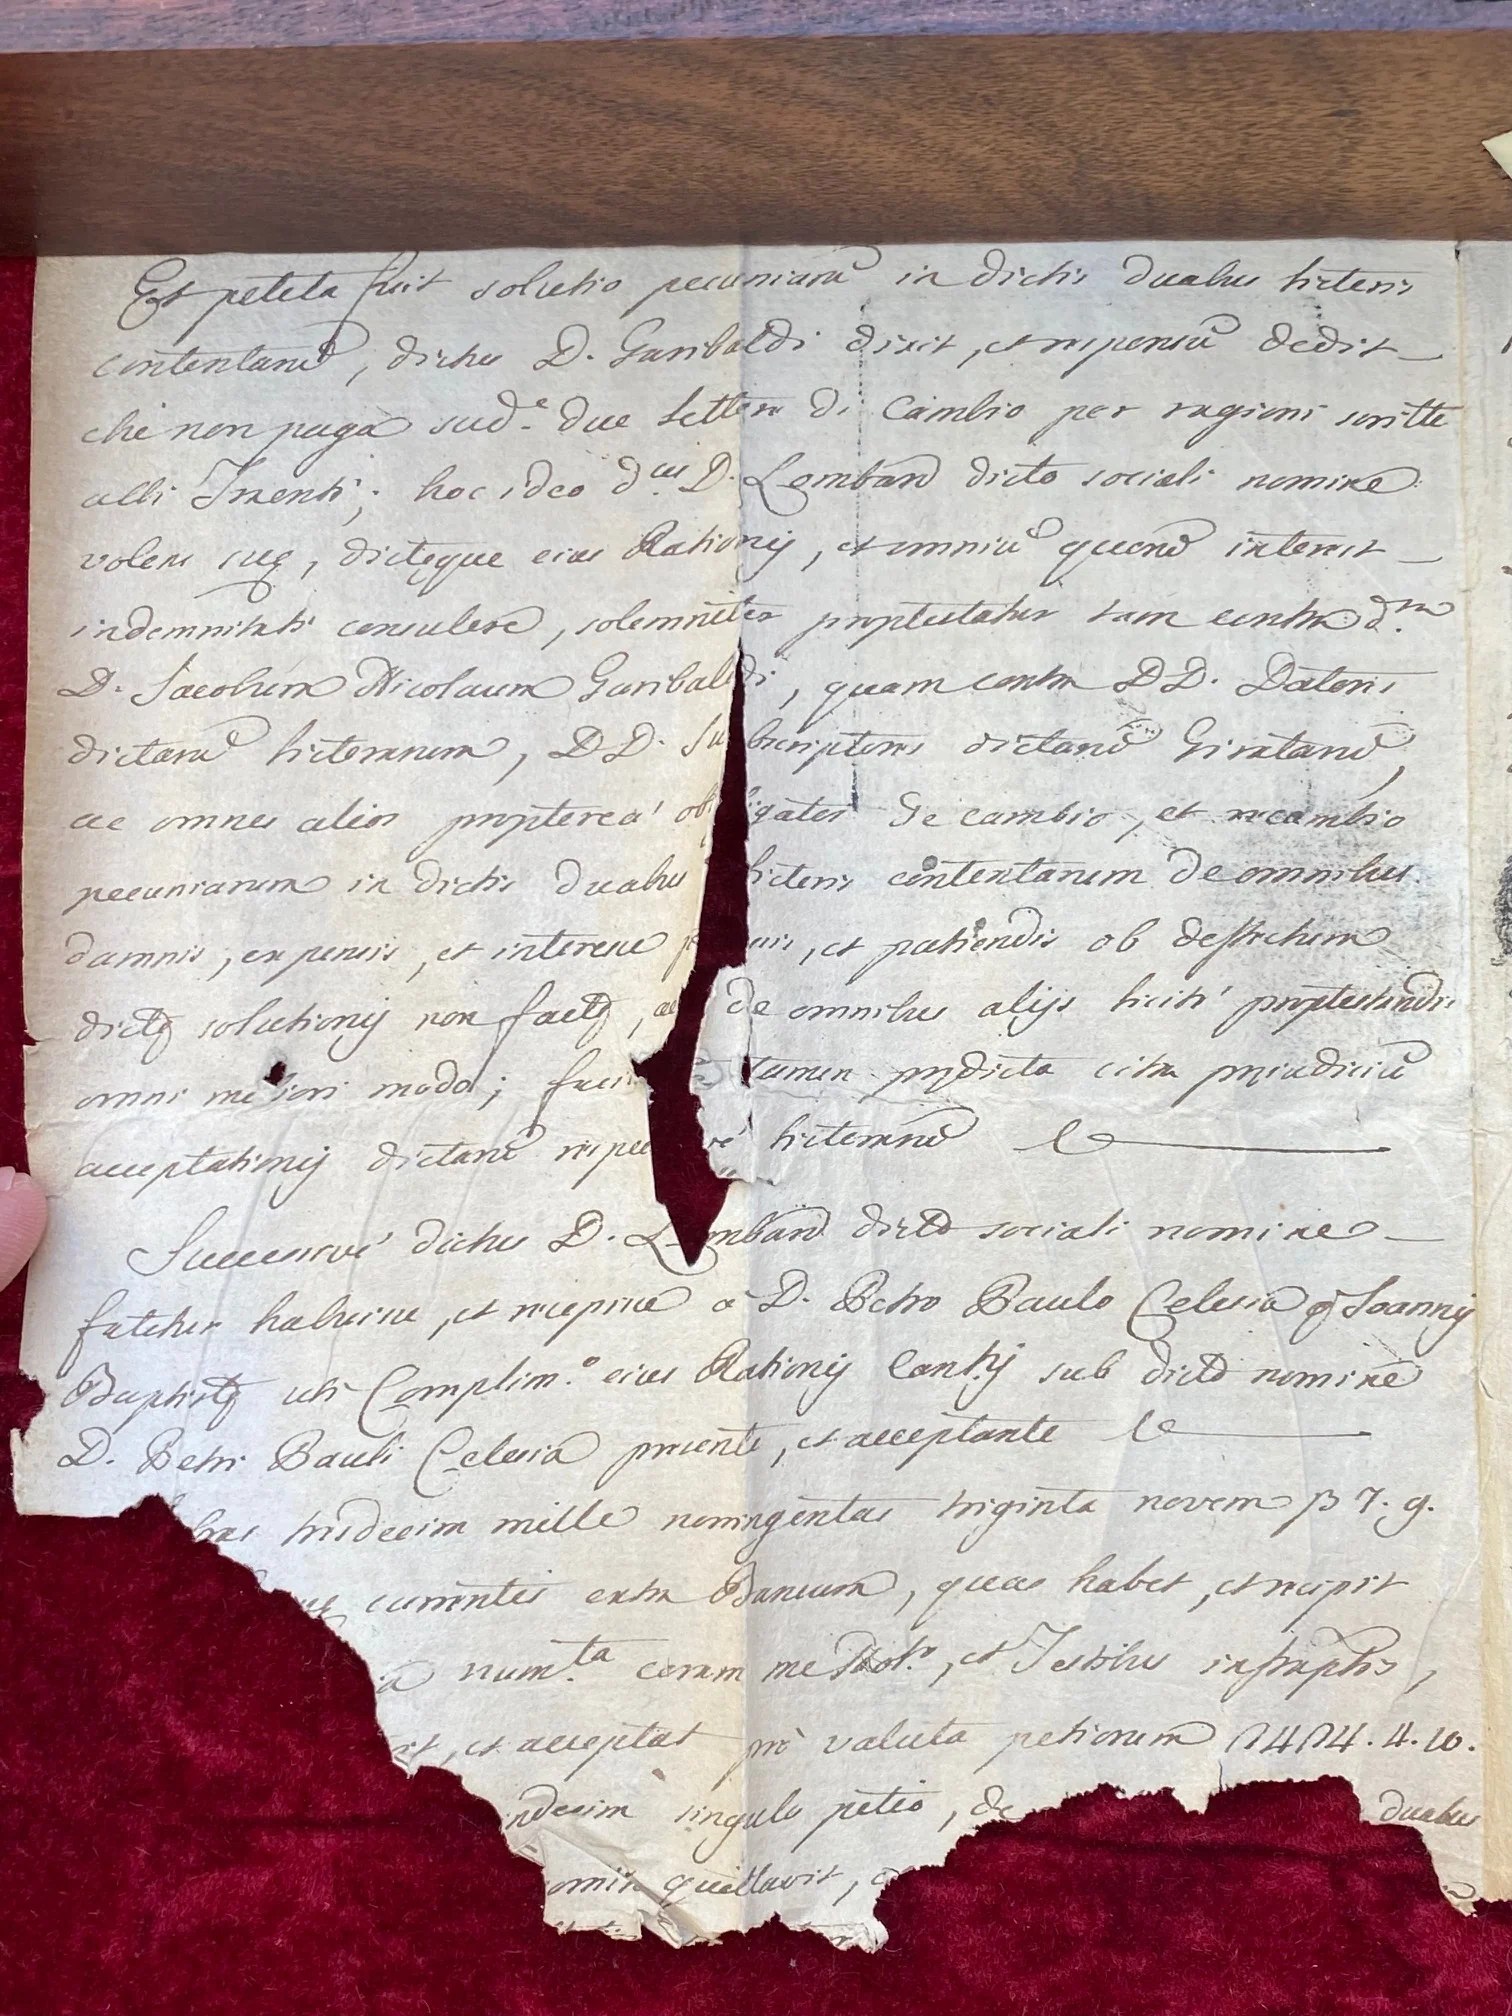 Et petita fuit solutio pecuniarū in dictis duabus litteris
contentarū, dictus D. Garibaldi dixit, et responsū dedit
che non paga sud.e due lettere di Cambio per ragioni scritte
alli Traenti; hoc ideo d.cus D. Lombard dicto sociali nomine
volens suę, dictęque eius Rationij, et omniū quorū interest
indemnitati consulere, solemniter protestatur tam contra d.m
D. Jacobum Nicolaum Garibaldi, quam contra DD. Datores
dictarū litterarum, DD. Subscriptores dictarū Giratarū,
ac omnes alios propterea obligatos de cambio, et recambio
pecuniarum in dictis duabus litteris contentarum de omnibus
damnis, expensis, et interesse et patiendis ob defectum
dictę solutionij non factę, ac de omnibus alijs licitis protestandis
omni meliori modo; tamen prędicta citra pręiudiciū
acceptationij dictarū litterarū
Successivè dictus D. Lombard dicto sociali nomine
fatetur habuisse, et recepisse a D. Petro Paulo Celesia q Joannij
Baptistę uti Complim.o eius Rationij Cantij sub dicto nomine
D. Petri Pauli Celesia presente, et acceptante
bras trisdecim mille noningentas triginta novem ß 7. 9.
currentis extra Bancum, quas habet, et recipit
num.ta coram me Not.o, et Testibus infrap̄tis,
et acceptat prò valuta petiorum 1414.4.10.
ndecim singulo petio, de duabus
quittavit,